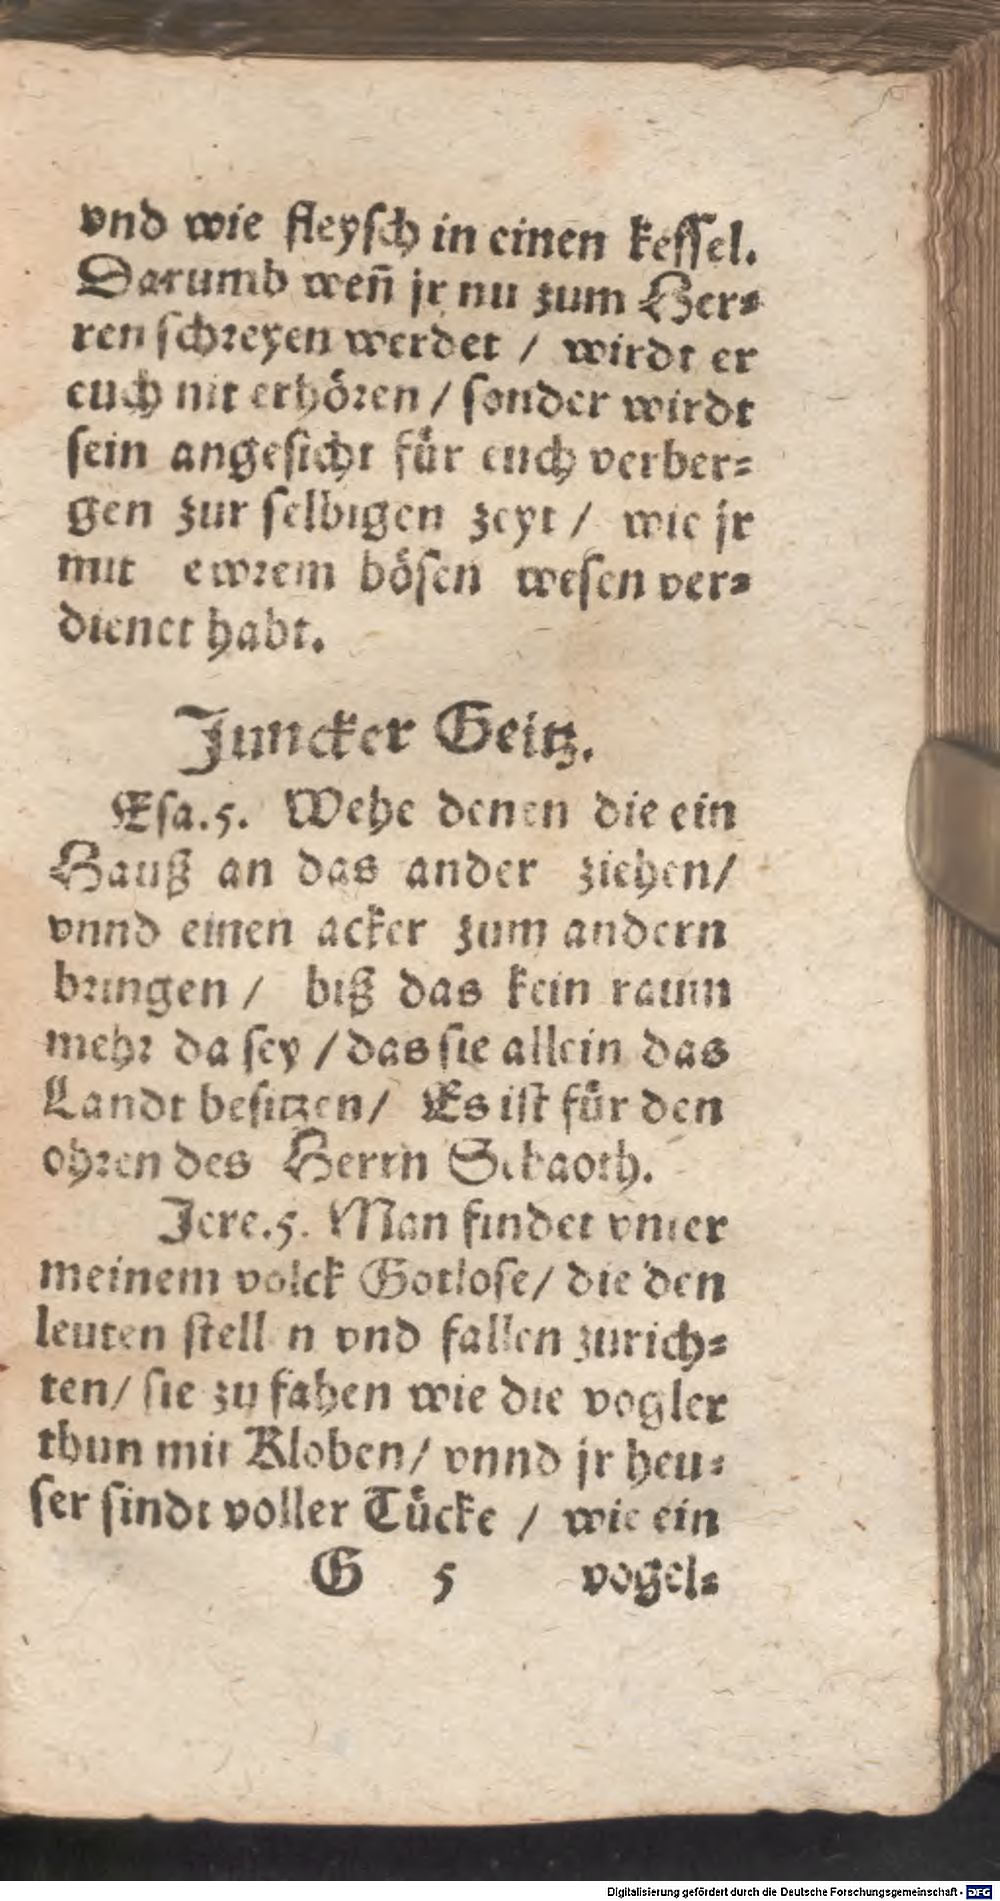 vnd wie fleyſch in einen keſſel.
Darumb weñ jr nu zum Her⸗
ren ſchreyen werdet / wirdt er
euch nit erhoͤren / ſonder wirdt
ſein angeſicht fuͤr euch verber⸗
gen zur ſelbigen zeyt / wie jr
mit ewrem boͤſen weſen ver⸗
dienet habt.
Juncker Geitz.
Eſa.5. Wehe denen die ein
Hauß an das ander ziehen/
vnnd einen acker zum andern
bringen / biß das kein raum
mehr da ſey / das ſie allein das
Landt beſitzen/ Es iſt fuͤr den
ohren des Herrn Sebaoth.
Jere.5. Man findet vnter
meinem volck Gotloſe/ die den
leuten ſtell n vnd fallen zurich⸗
ten/ ſie zu fahen wie die vogler
thun mit Kloben/ vnnd jr heu⸗
ſer ſindt voller Tuͤcke / wie ein
G 5 vogel⸗
Digitalisierung gefördert durch die Deutsche Forschungsgemeinschaft - DFG